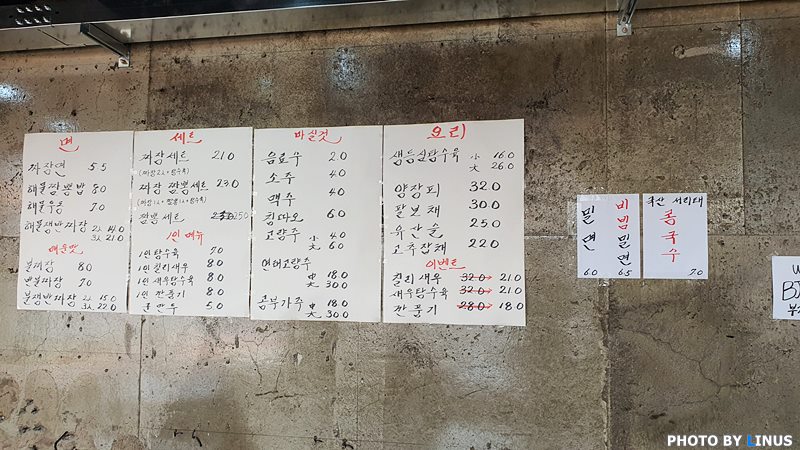 면
짜장면 5.5
해물짬뽕밥 8.0
해물우동 7.0
해물쟁반짜장 2人 14.0
3人 21.0
매운맛
불짜장 8.0
불짜장 7.0
불쟁반짜장 2人 15.0
3人 22.0
세트
짜장세트 21.0
(짜장2人+탕수육)
짜장 짬뽕세트 23.0
짬뽕세트 25.0
1인 메뉴
1인탕수육 7.0
1인칠리새우 8.0
1인새우탕수육 8.0
1인깐풍기 8.0
군만두 5.0
마실것
음료수 2.0
소주 4.0
맥주 4.0
칭따오 6.0
고량주 小 4.0
大 6.0
연태고량주 中 18.0
大 30.0
공부가주 中 18.0
大 30.0
요리
생등심탕수육 小 16.0
大 26.0
양장피 32.0
팔보채 30.0
유산슬 25.0
고추잡채 22.0
이벤트
칠리새우 32.0→ 21.0
새우탕수육 32.0→ 21.0
깐풍기 28.0→ 18.0
밀면
6.0
비빔밀면
6.5
국산 서리태
콩국수
7.0
PHOTO BY LINUS